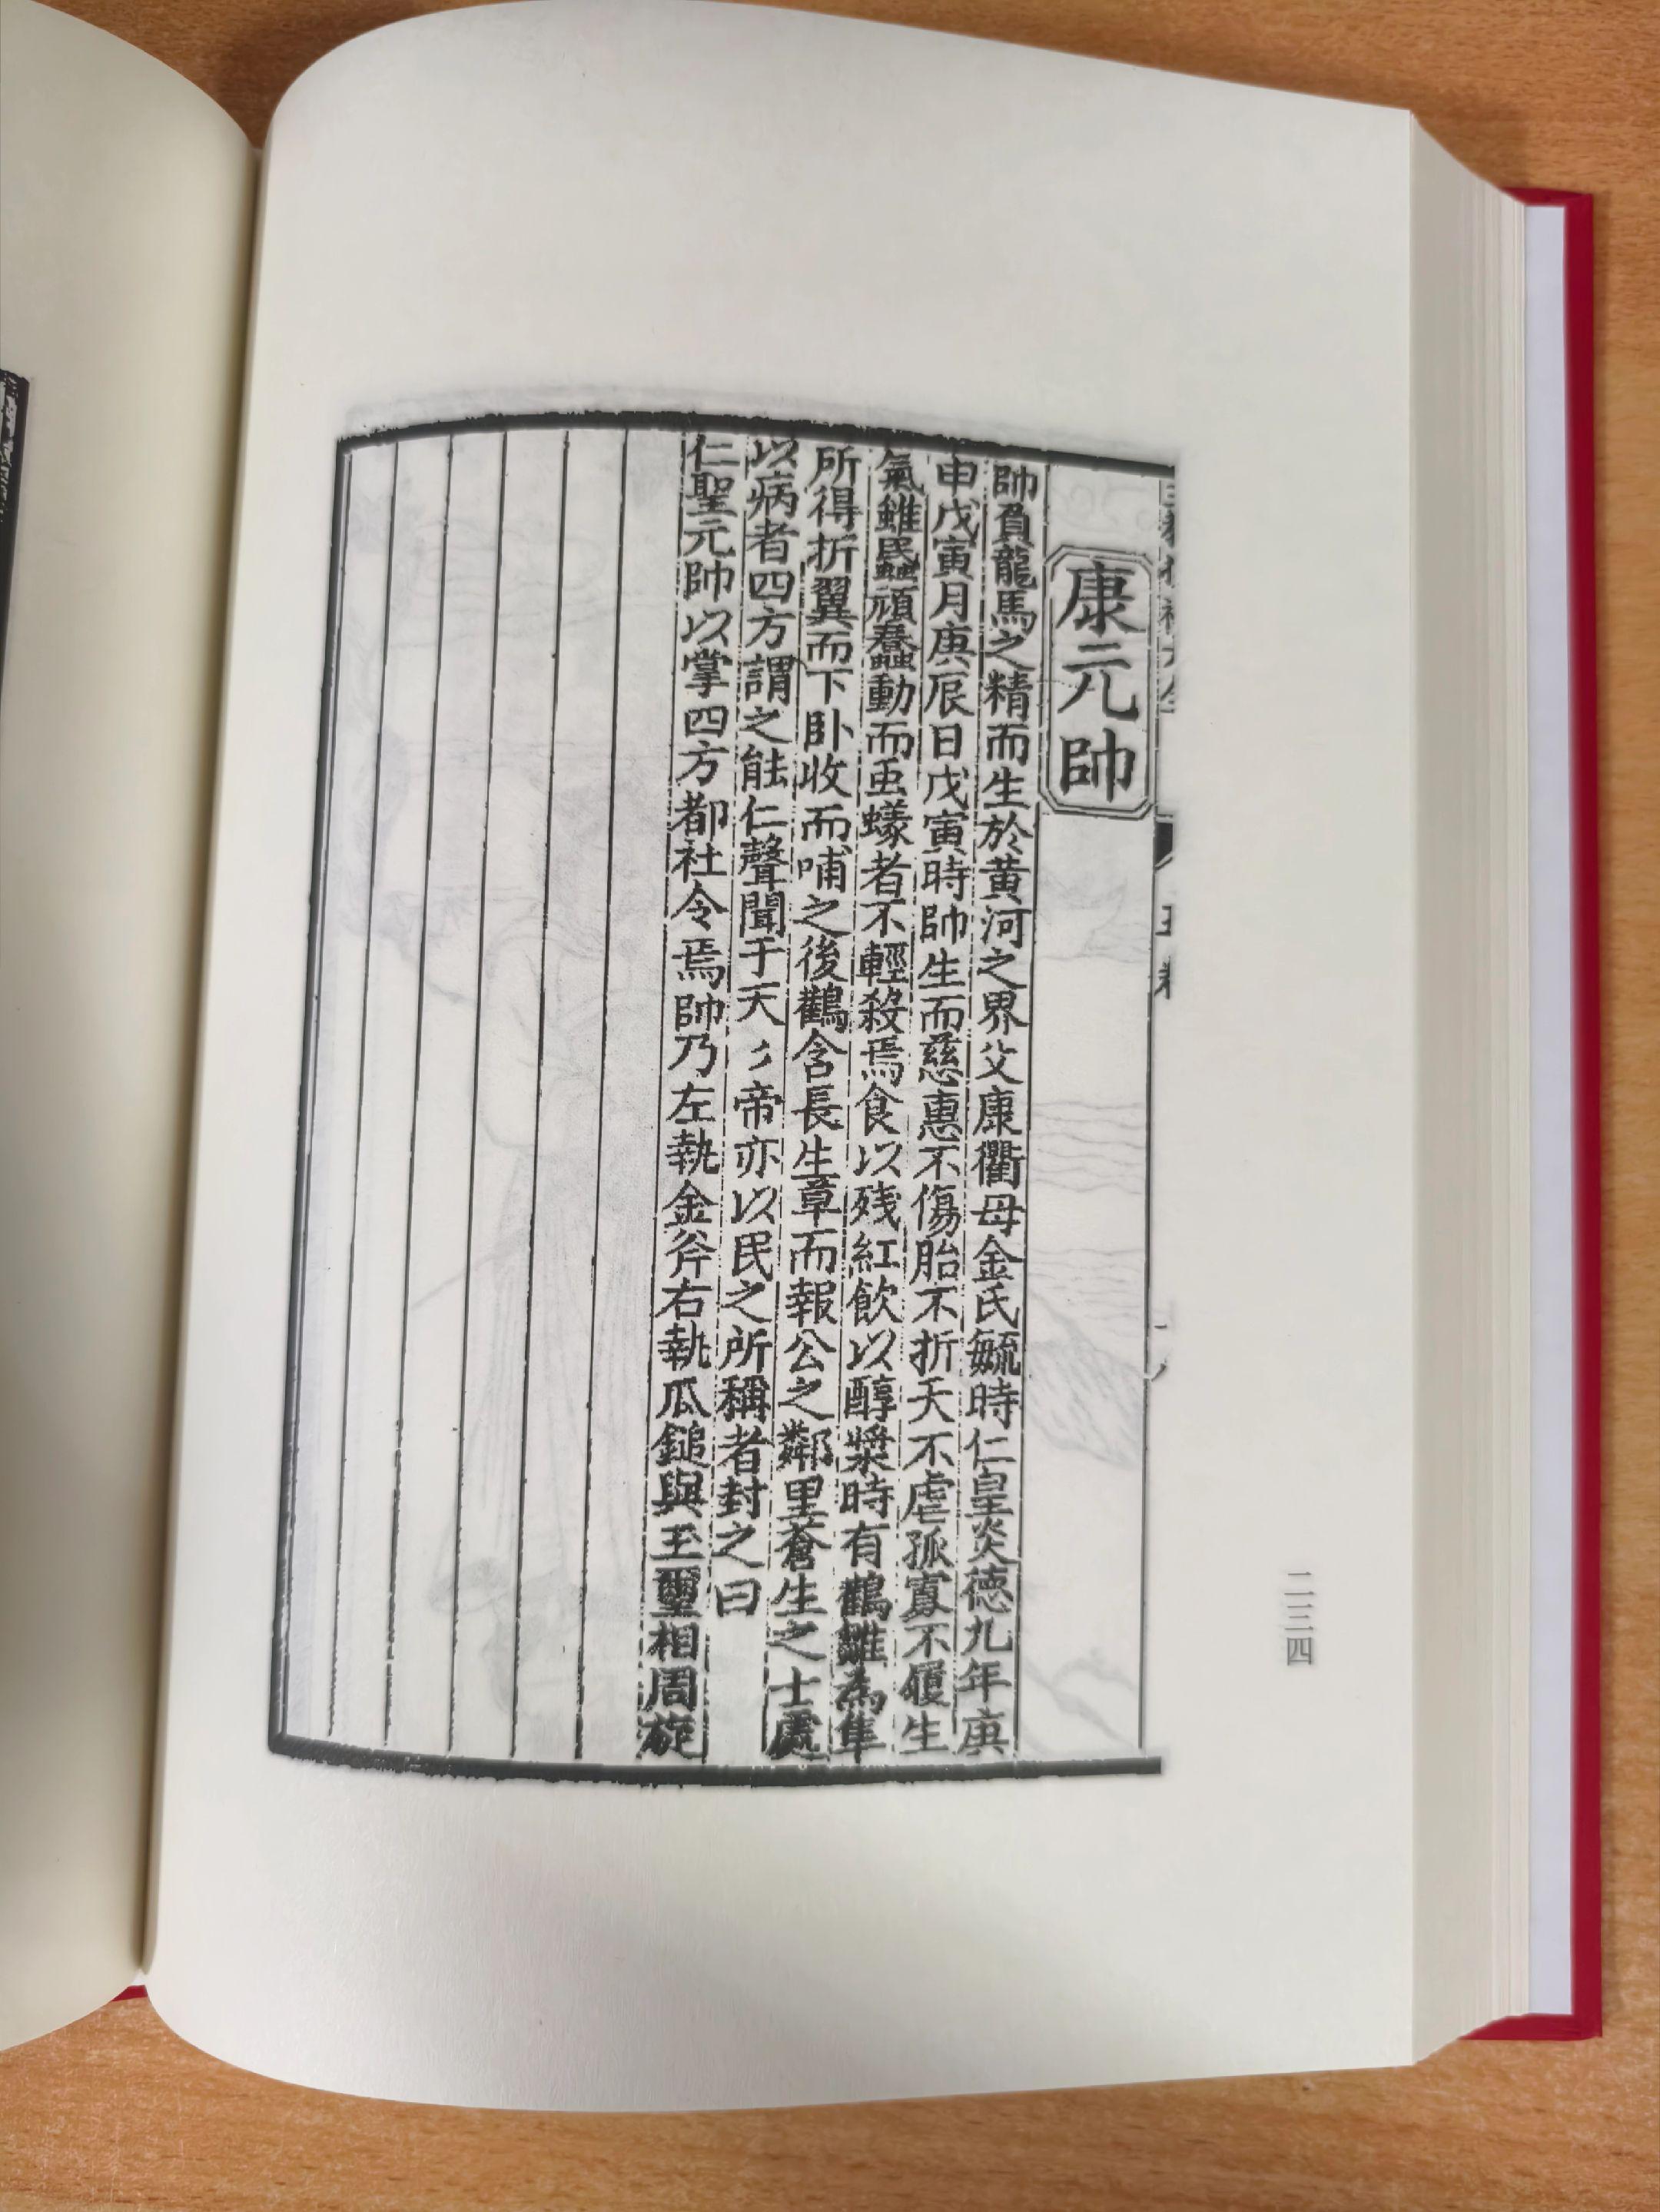 康元帥
帥負龍馬之精而生於黄河之界父康衢母金氏毓時仁皇炎德九年庚
申戊寅月庚辰日戊寅時帥生而慈惠不傷胎不折夭不虐孤寡不履生
氣雖民蟲頑蠢動而䖝蟻者不輕殺焉食以残紅飲以醇漿時有鸛雛為隼
所得折翼而下卧收而哺之後鸛含長生章而報公之鄰里蒼生之士處
以病者四方謂之能仁聲聞于天〻帝亦以民之所稱者封之曰
仁聖元帥以掌四方都社令焉帥乃左執金斧右執瓜鎚與玉璽相周旋
二三四